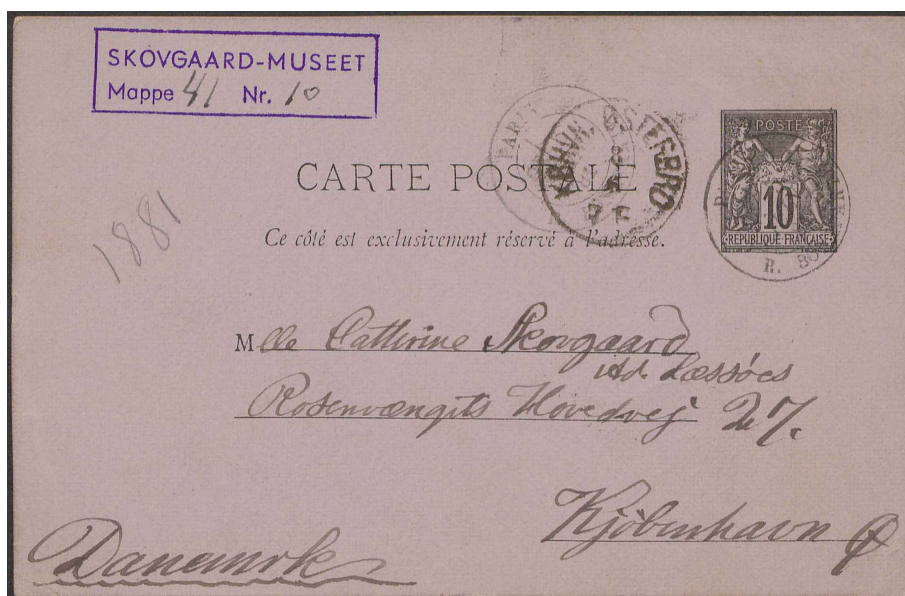 SKOVGAARD-MUSEET
Mappe 41 Nr. 10
PARIS
KJØBHVN. ØSTERBRO
POSTE
10
REPUBLIQUE FRANÇAISE
R. BO
CARTE POSTALE
Ce côté est exclusivement réservé à l'adresse.
1881
Mlle Cathrine Skovgaard
Ad. Læssøes
Rosenvængets Hovedvej 27.
Kjøbenhavn Ø
Danemrk